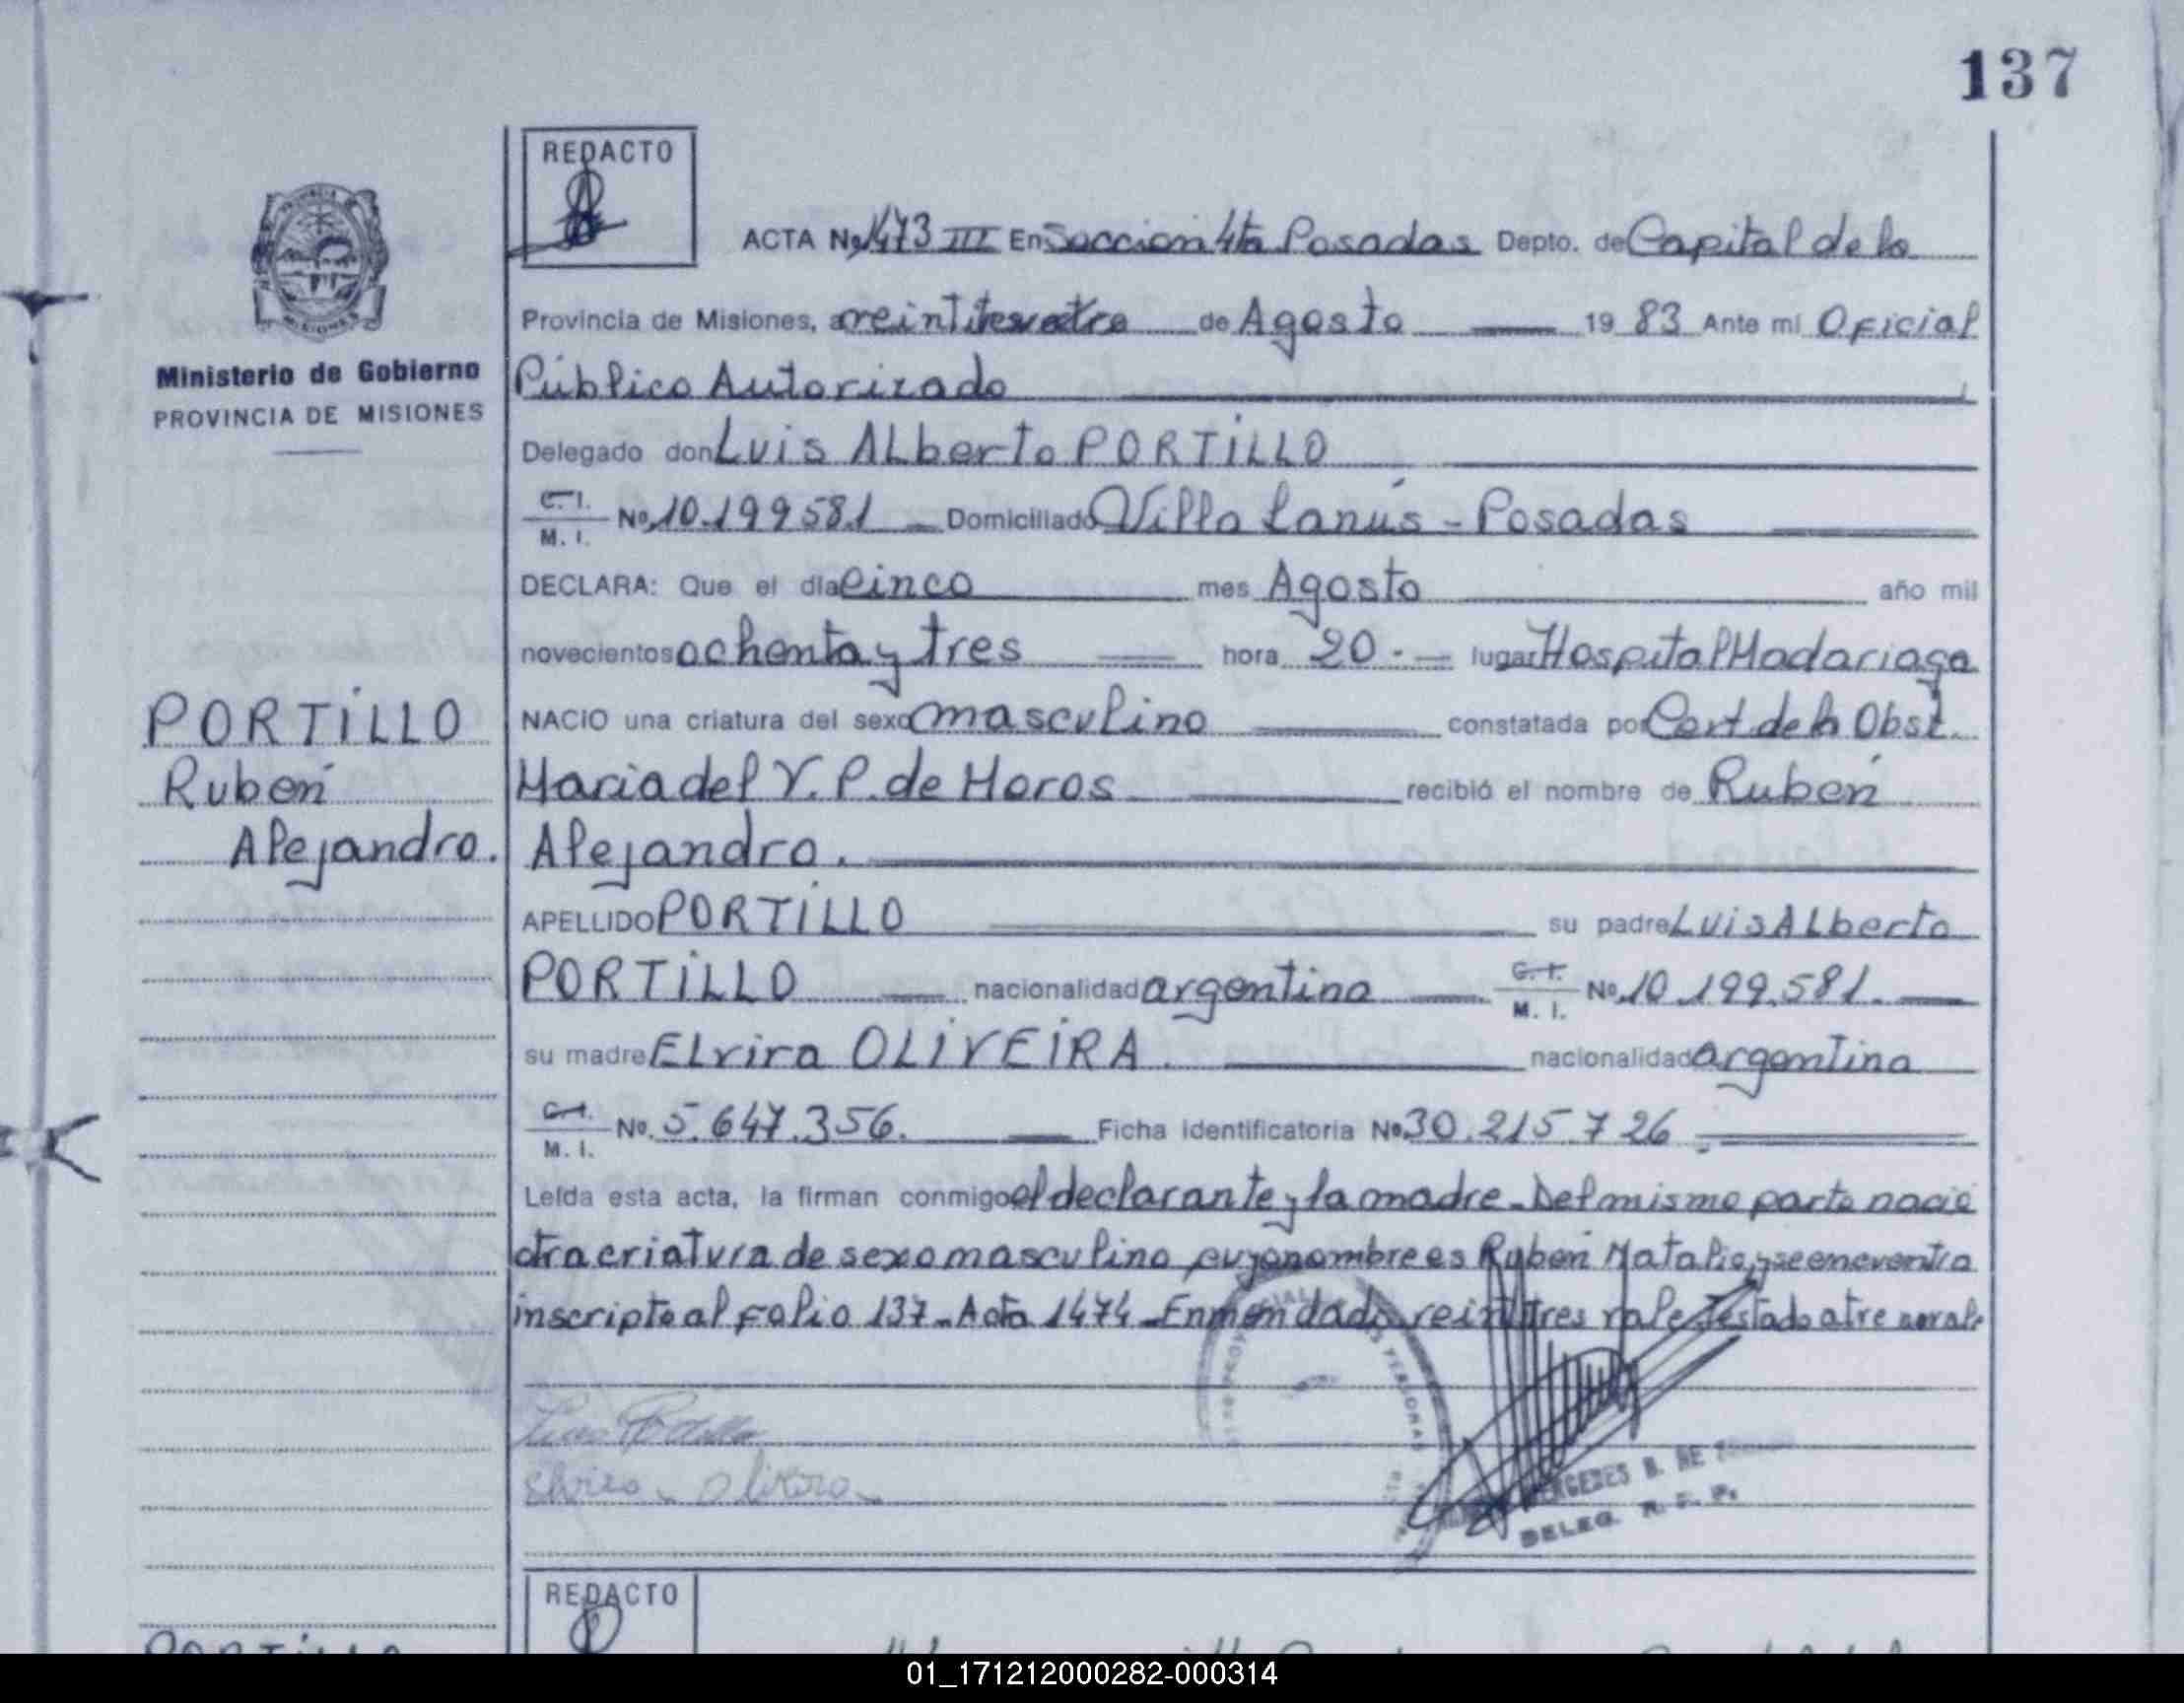 137
REDACTO
ACTA No 1473 III En Seccion 4ta Posadas Depto. de Capital de la
Provincia de Misiones, a de Agosto 19 83 Ante mí Oficial
Ministerio de Gobierno
PROVINCIA DE MISIONES
Público Autorizado
Delegado don Luis ALberto PORTiLLO
C. I. M. I. No. 10.199581 Domiciliado Villa Lanús - Posadas
DECLARA: Que el día cinco mes Agosto año mil
novecientos ochenta y tres hora 20.- lugar Hospital Madariaga
PORTiLLO
Rubén
Alejandro.
NACIO una criatura del sexo masculino constatada por Cert. de la Obst.
Maria del V. P. de recibió el nombre de Rubén
Alejandro.
APELLIDO PORTiLLO su padre Luis ALberto
PORTiLLO nacionalidad argentina C. I. M. I. No. 10.199.581.
su madre ELvira OLiVEiRA. nacionalidad argentina
C. I. M. I. No. 5.647.356. Ficha identificatoria No. 30.215.726
Leída esta acta, la firman conmigo el declarante y la madre - Del mismo parto nació
otra criatura de sexo masculino cuyo nombre es Rubén Natalio y se encuentra
inscripto al folio 137 - Acta 1474 - Enmendado veintitres vale Testado
Luis Portillo
DELEG. R. P. P.
REDACTO
01_171212000282-000314